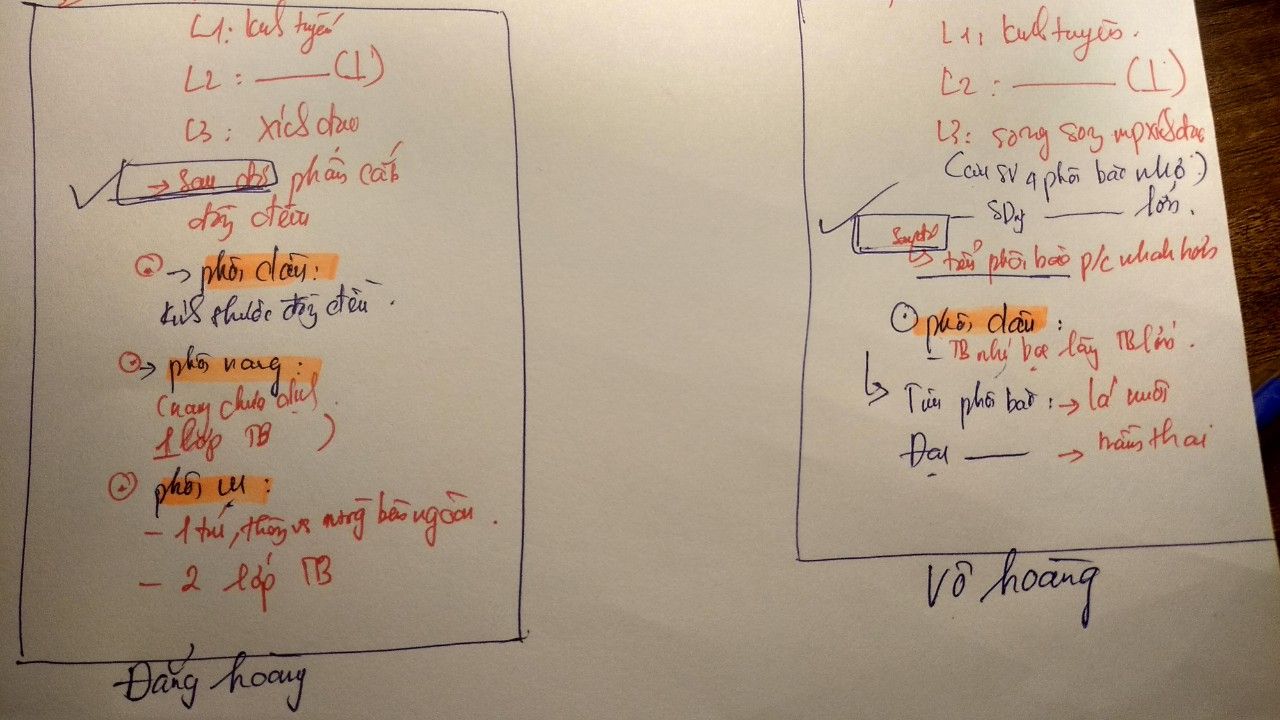 L1: kinh tuyến
L2 : —— (⊥)
L3 : xích đạo
→ sau đó phân cắt
đồng đều
→ phôi dâu :
kích thước đồng đều .
→ phôi nang :
(nang chưa
1 lớp TB )
phôi vị :
– 1 túi, thông vs bên ngoài .
– 2 lớp TB
Đẳng hoàng
L1: kinh tuyến .
L2 : —— (⊥)
L3: song song mp xích đạo
(cực SV 4 phôi bào nhỏ)
—— —— lớn.
sau đó
↳ tiểu phôi bào p/c nhanh hơn
phôi dâu :
– TB nhỏ bọc lấy TB lớn .
↳ Tiểu phôi bào : → lá nuôi
Đại —— → mầm thai
Vô hoàng